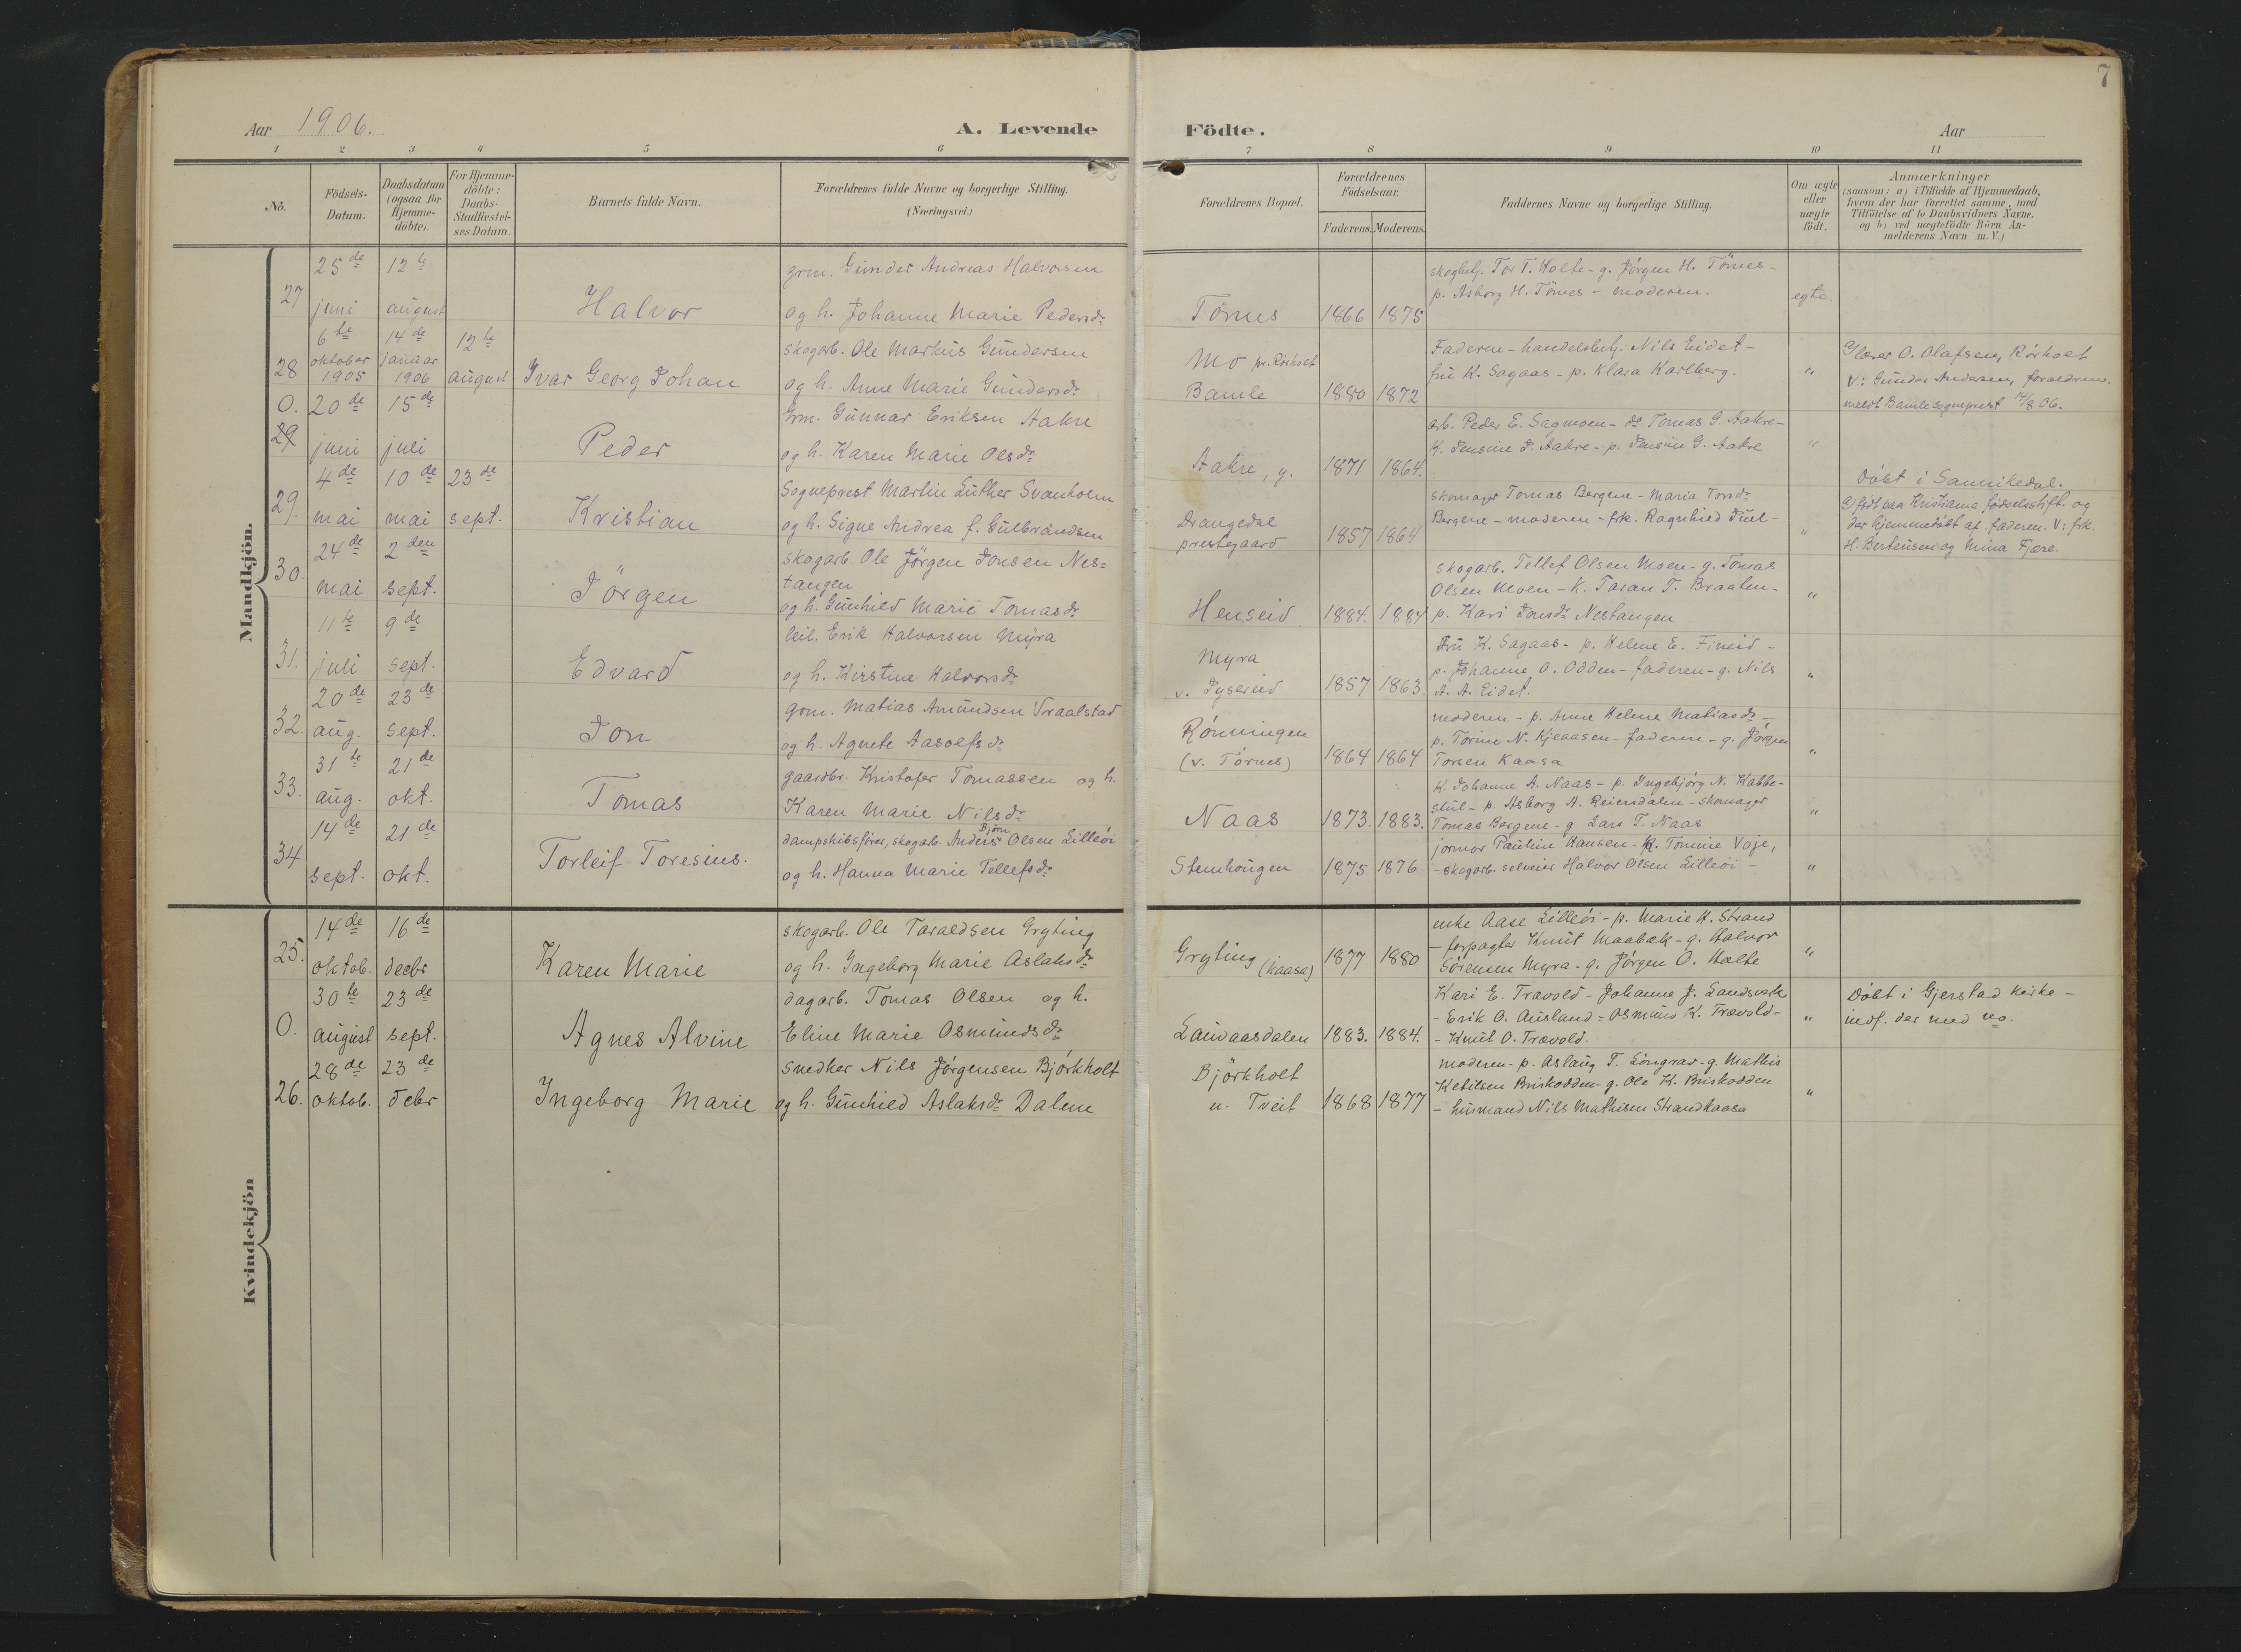 7
Aar 1906.
A. Levende Födte.
Aar
1 2 3 4 5 6 7 8 9 10 11
No.
Födsels-
Datum.
Daabsdatum
(ogsaa for
Hjemme-
döbte).
For Hjemme-
döbte:
Daabs-
Stadfæstel-
ses Datum.
Barnets fulde Navn.
Forældrenes fulde Navne og borgerlige Stilling.
(Næringsvei.)
Forældrenes Bopæl.
Forældrenes
Födselsaar.
Faderens. Moderens.
Faddernes Navne og borgerlige Stilling.
Om ægte
eller
uægte
födt.
Anmærkninger
(saasom: a) i Tilfælde af Hjemmedaab,
hvem der har forrettet samme, med
Tilföielse af to Daabsvidners Navne.
og b) ved uægtefödte Börn An-
melderens Navn m. V.)
Mandkjön.
27
25de
juni
12te
august
Halvor
grm. Gunder Andreas Halvorsen
og h. Johanne Marie Pedersdr
Törnes
1866 1875
skogbetj. Tor T. Holte - g. Jörgen H. Törnes -
p. Asborg H. Törnes - moderen.
egte.
28
6te
oktober
1905
14de
januar
1906
12te
august
Ivar Georg Johan
skogarb. Ole Markus Gundersen
og h. Anne Marie Gundersdr
Mo pr. Rörholt
Bamle
1880 1872
Faderen - handelsbetj. Nils Eidet -
fru K. Sagaas - p. Klara Karlberg.
"
lærer O. Olafsen, Rörholt
v: Gunder Andersen, forældrene.
meldt Bamle sogneprest 14/8 06.
0.
29
20de
juni
15de
juli
Peder
Grm. Gunnar Eriksen Aakre
og h. Karen Marie Olsdr
Aakre, y.
1871 1864.
arb. Peder E. Sagmoen - do Tomas G. Aakre -
K. Jensine J. Aakre - p. Jensine G. Aakre
"
Döbt i Sannikedal.
29.
4de
mai
10de
mai
23de
sept.
Kristian
Sogneprest Martin Luther Svanholm
og h. Signe Andrea f. Gulbrandsen
Drangedal
prestegaard
1857 1864
skomager Tomas Bergene - Maria Torsdr
Bergene - moderen - frk. Ragnhild Juel -
"
a) födt paa Kristiania födselsstift. og
der hjemmedöbt af faderen. V: frk.
H. Bertensen og Mina Fjære.
30.
24de
mai
2den
sept.
Jörgen
skogarb. Ole Jörgen Jonsen Nes=
tangen
og h. Gunhild Marie Tomasdr
Henseid
1884. 1884
skogarb. Tellef Olsen Moen - g. Tomas
Olsen Moen - K. Taran T. Braaten -
p. Kari Jonsdr Nestangen
"
31.
11te
juli
9de
sept.
Edvard
leil. Erik Halvorsen Myra
og h. Kirstine Halvorsdr
Myra
v. Dyserud
1857 1863
Fru K. Sagaas - p. Helene E. Fineid -
p. Johanne O. Odden - faderen - g. Nils
A. A. Eidet.
"
32.
20de
aug.
23de
sept.
Jon
gom. Matias Amundsen Traalstad
og h. Agnete Aasolfsdr
Rönningen
(v. Törnes)
1864 1864
moderen - p. Anne Helene Matiasdr -
p. Torine N. Kjeaasen - faderen - g. Jörgen
Torsen Kaasa
"
33.
31te
aug.
21de
okt.
Tomas
gaardbr. Kristofer Tomassen og h.
Karen Marie Nilsdr
Naas
1873. 1883.
K. Johanne A. Naas - p. Ingebjörg N. Kabbe-
stul - p. Asborg A. Reiersdalen - skomager
Tomas Bergene - g Lars T. Naas
"
34
14de
sept.
21de
okt.
Torleif Toresius.
dampskibsförer, skogarb. Anders Björn Olsen Lilleöi
og h. Hanna Marie Tellefsdr
Stemhougen
1875 1876
jormor Pauline Hansen - K. Tomine Voje,
- skogarb. selveier Halvor Olsen Lilleöi -
"
Kvindekjön
25.
14de
oktob.
16de
decbr
Karen Marie
skogarb. Ole Taraldsen Gryting
og h. Ingeborg Marie Aslaksdr
Gryting (kaasa)
1877 1880
enke Aase Lilleöi - p. Marie H. Strand
- forpagter Knut Maabæk - g. Halvor
Sörensen Myra - g. Jörgen O. Holte
"
0.
30te
august
23de
sept.
Agnes Alvine
dagarb. Tomas Olsen og h.
Eline Marie Osmundsdr
Lauvaasdalen
1883. 1884.
Kari E. Trævold - Johanne J. Landsverk
- Erik O. Ausland - Osmund K. Trævold -
- Knut O. Trævold.
"
Döbt i Gjerstad kirke -
indf. der med no.
26.
28de
oktob.
23de
debr
Ingeborg Marie
Snedker Nils Jörgensen Björkholt
og h. Gunhild Aslaksdr Dalene
Björkholt
u. Tveit
1868 1877
moderen - p. Aslaug T. Löngrav - g. Mathis
Ketilsen Briskodden - g. Ole K. Briskodden
- husmand Nils Mathisen Strandkaasa
"